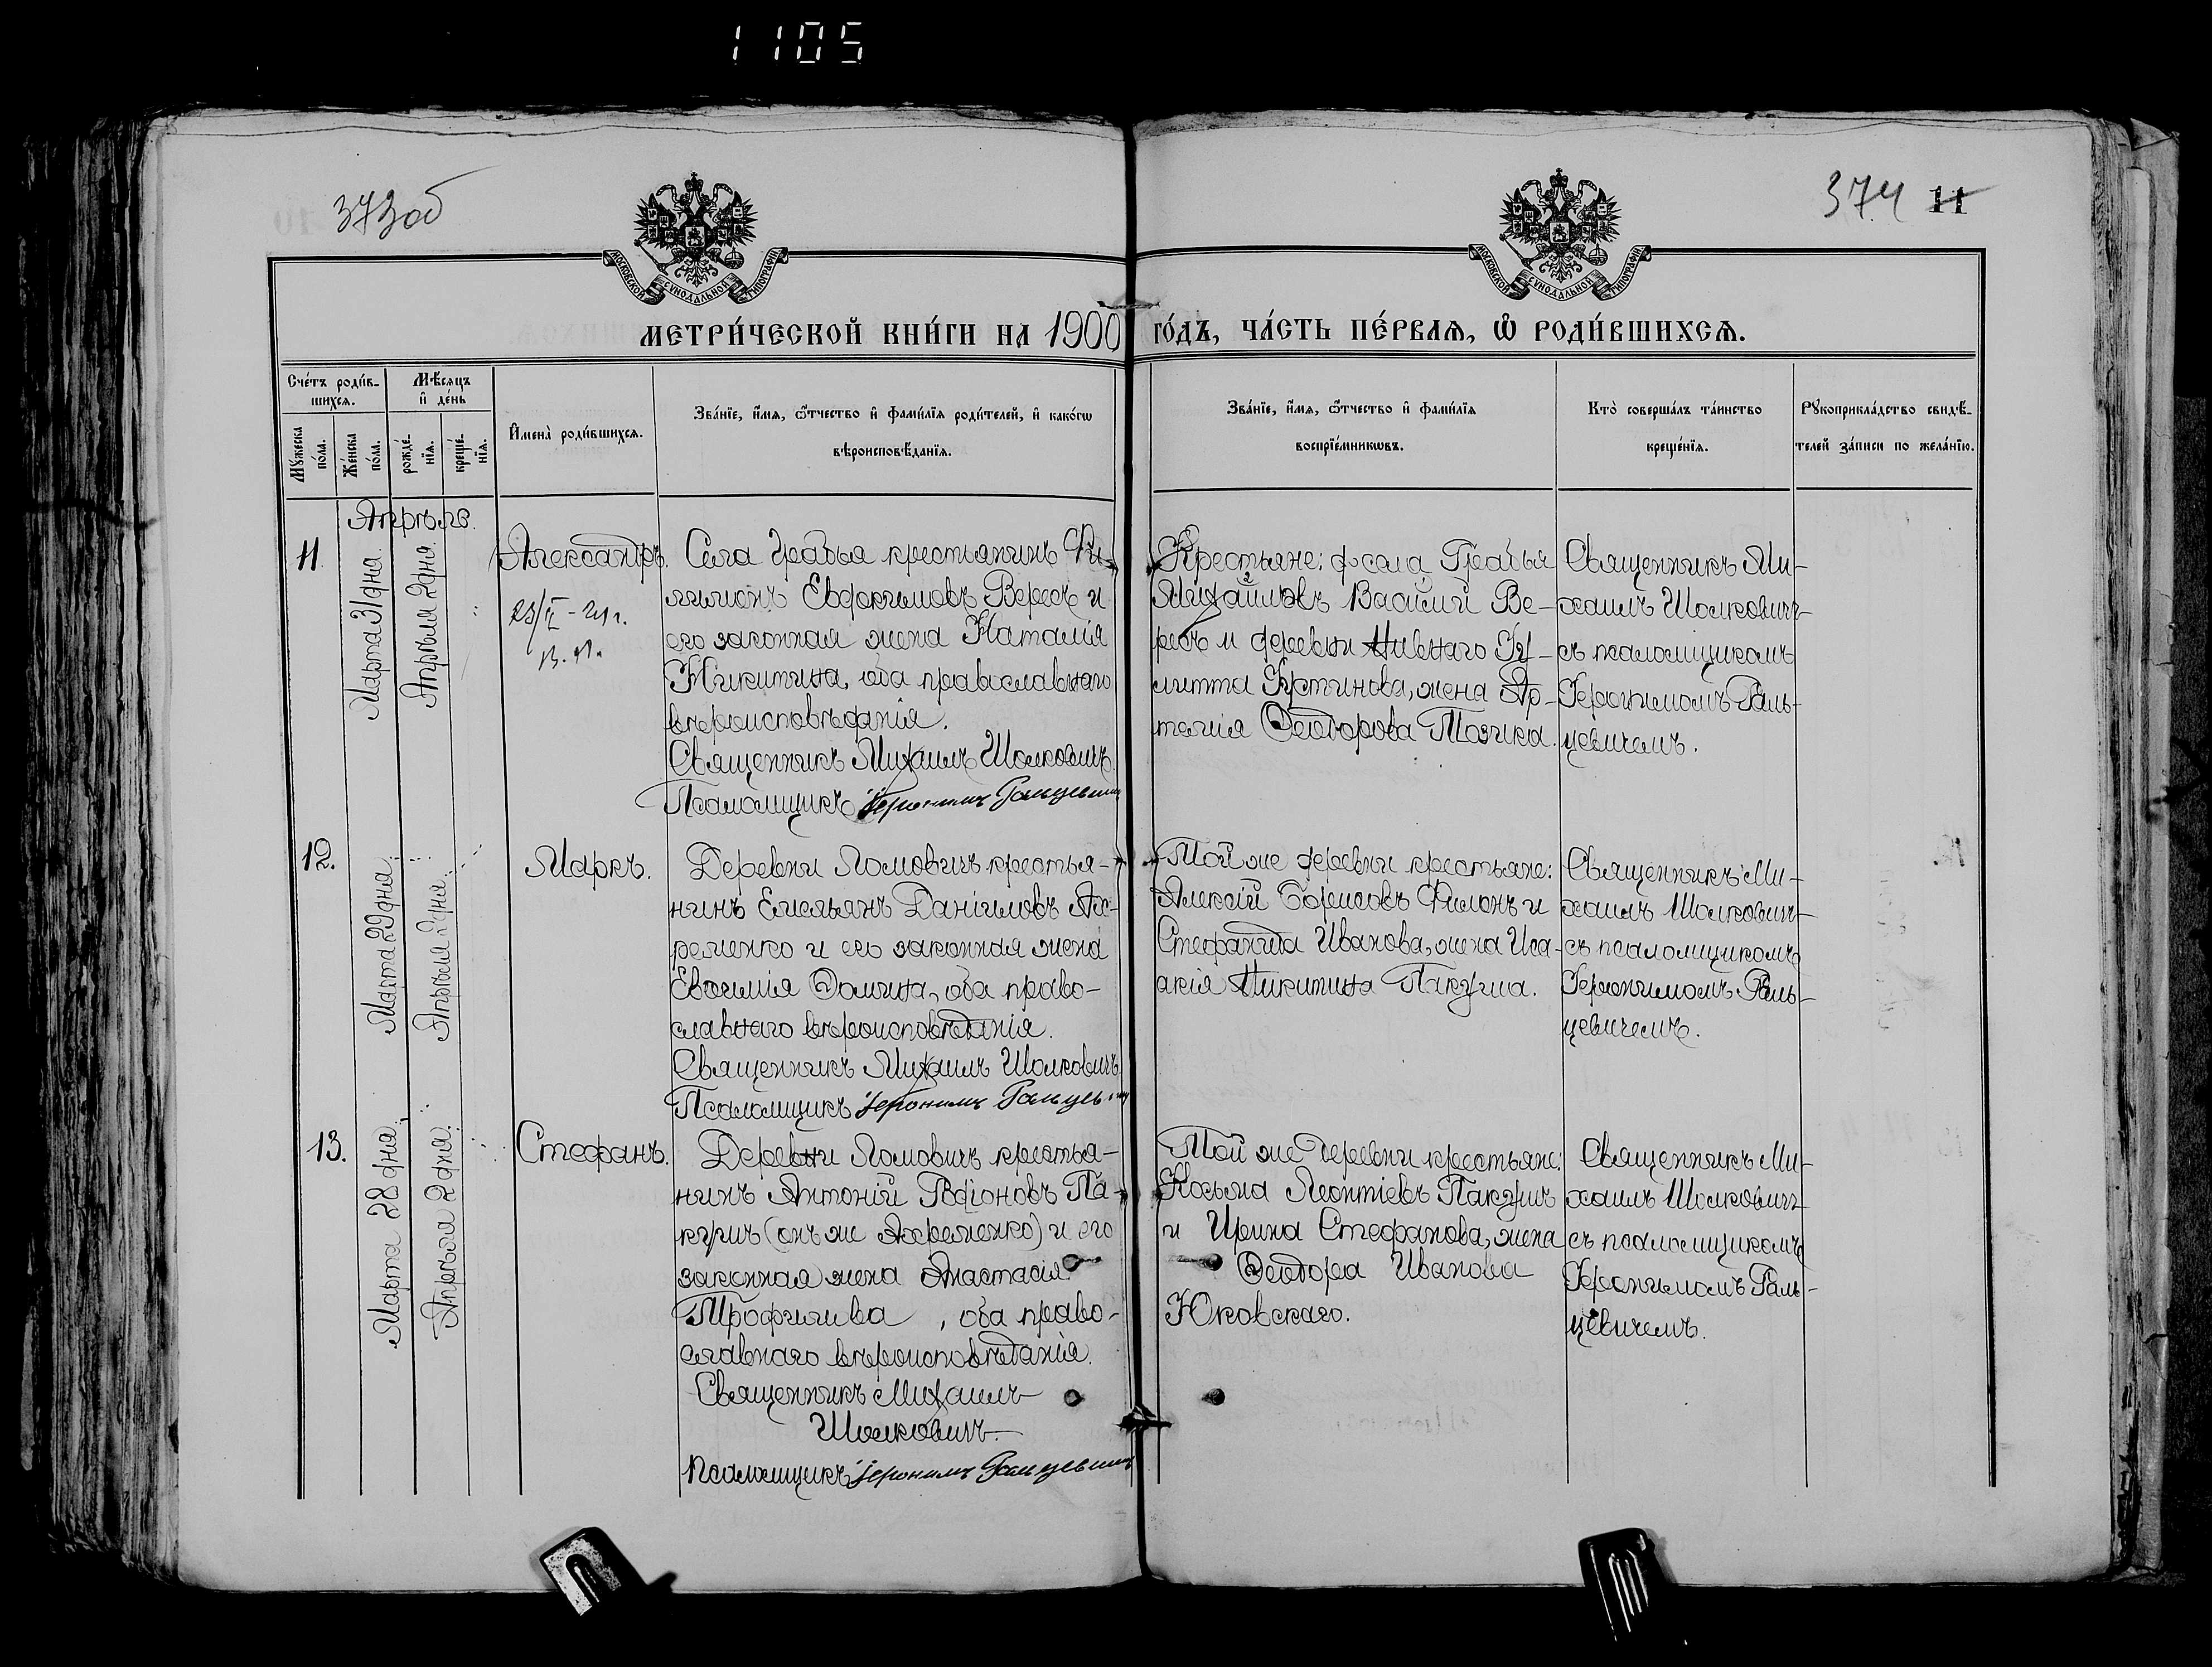 1105
373об
374 11
МОСКОВСКОЙ СѴНОДАЛЬНОЙ ТИПОГРАФІИ
МОСКОВСКОЙ СѴНОДАЛЬНОЙ ТИПОГРАФІИ
МЕТРИ́ЧЕСКОЙ КНИ́ГИ НА 1900 ГО́ДЪ, ЧА́СТЬ ПЕ́РВАѦ, Ѽ РОДИ́ВШИХСѦ.
Сче́тъ роди́в-
шихсѧ.
Мѣ́сяцъ
и҆ де́нь
Мꙋ́жеска
по́ла.
Же́нска
по́ла.
рожде́-
нїѧ.
креще́-
нїѧ.
И҆мена̀ роди́вшихсѧ.
Зва́нїе, и҆́мѧ, ѻ҆́тчество и҆ фами́лїѧ роди́телей, и҆ како́гѡ
вѣроисповѣ́данїѧ.
Зва́нїе, и҆́мѧ, ѻ҆́тчество и҆ фами́лїѧ
воспрїе́мникѡвъ.
Кто̀ соверша́лъ та́инство
креще́нїѧ.
Рꙋкоприкла́дство свидѣ́-
телей за́писи по жела́нїю.
Апрѣль.
11.
Марта 31 дня.
Апрѣля 2 дня.
Александръ.
Села Грабья крестьянинъ Фи-
лимонъ Евфимовъ Вересъ и
его законная жена Наталія
Никитина, оба православнаго
вѣроисповѣданія.
Священникъ Михаилъ Шолковичъ
Псаломщикъ Іеронимъ Гальцевичъ
Крестьяне: села Грабья
Василій Ве-
ресъ и деревни Нивнаго
жена Ар-
темія Ѳеодорова
Священникъ Ми-
хаилъ Шолковичъ
съ псаломщикомъ
Іеронимомъ Галь-
цевичемъ.
12.
Марта 29 дня.
Апрѣля 2 дня.
Маркъ.
Деревни Ломовичъ крестья-
нинъ Емельянъ Даніиловъ Ах-
ременко и его законная жена
Евфимія Домина, оба право-
славнаго вѣроисповѣданія.
Священникъ Михаилъ Шолковичъ
Псаломщикъ Іеронимъ Гальцевичъ
Той же деревни крестьяне:
Алексій Борисовъ Филонъ и
Стефанида Иванова, жена Иса-
акія Никитина Пакуша.
Священникъ Ми-
хаилъ Шолковичъ
съ псаломщикомъ
Іеронимомъ Галь-
цевичемъ.
13.
Марта 28 дня.
Апрѣля 2 дня.
Стефанъ.
Деревни Ломовичъ крестья-
нинъ Антоній Родіоновъ Па-
кушъ (онъ же Ахременко) и его
законная жена Анастасія
Трофимова, оба право-
славнаго вѣроисповѣданія.
Священникъ Михаилъ
Шолковичъ.
Псаломщикъ Іеронимъ Гальцевичъ
Той же деревни крестьяне:
Козьма Леонтіевъ Пакушъ
и Ирина Стефанова, жена
Ѳеодора Иванова
Юковскаго.
Священникъ Ми-
хаилъ Шолковичъ
съ псаломщикомъ
Іеронимомъ Галь-
цевичемъ.